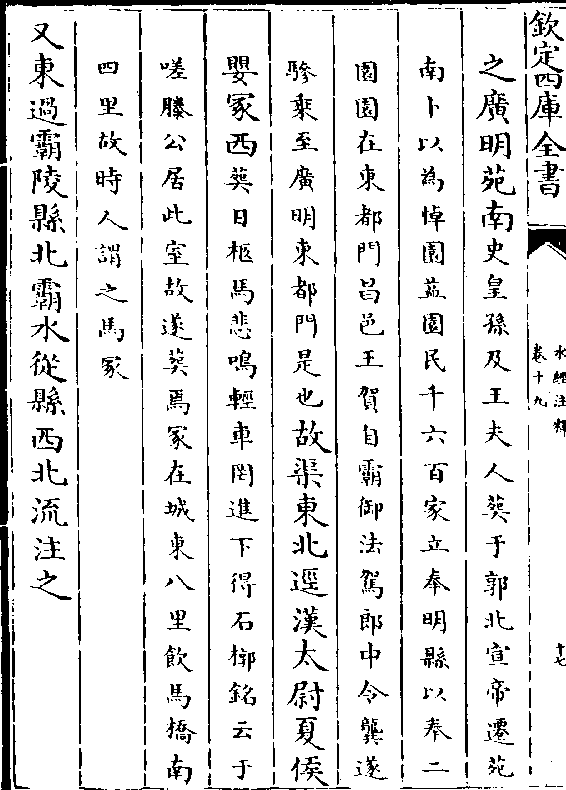 欽定四庫全書
水經注釋
卷十九
十七
之廣明苑南史皇孫及王夫人葬于郭北宣帝遷苑
南卜以為悼園益園民千六百家立奉明縣以奉二
園園在東都門昌邑王賀自霸御法駕郎中令龔遂
驂乘至廣明東都門是也故渠東北逕漢太尉夏侯
嬰冢西葬日柩馬悲鳴輕車罔進下得石槨銘云于
嗟滕公居此室故遂葬焉冢在城東八里飲馬橋南
四里故時人謂之馬冢
又東過霸陵縣北霸水從縣西北流注之